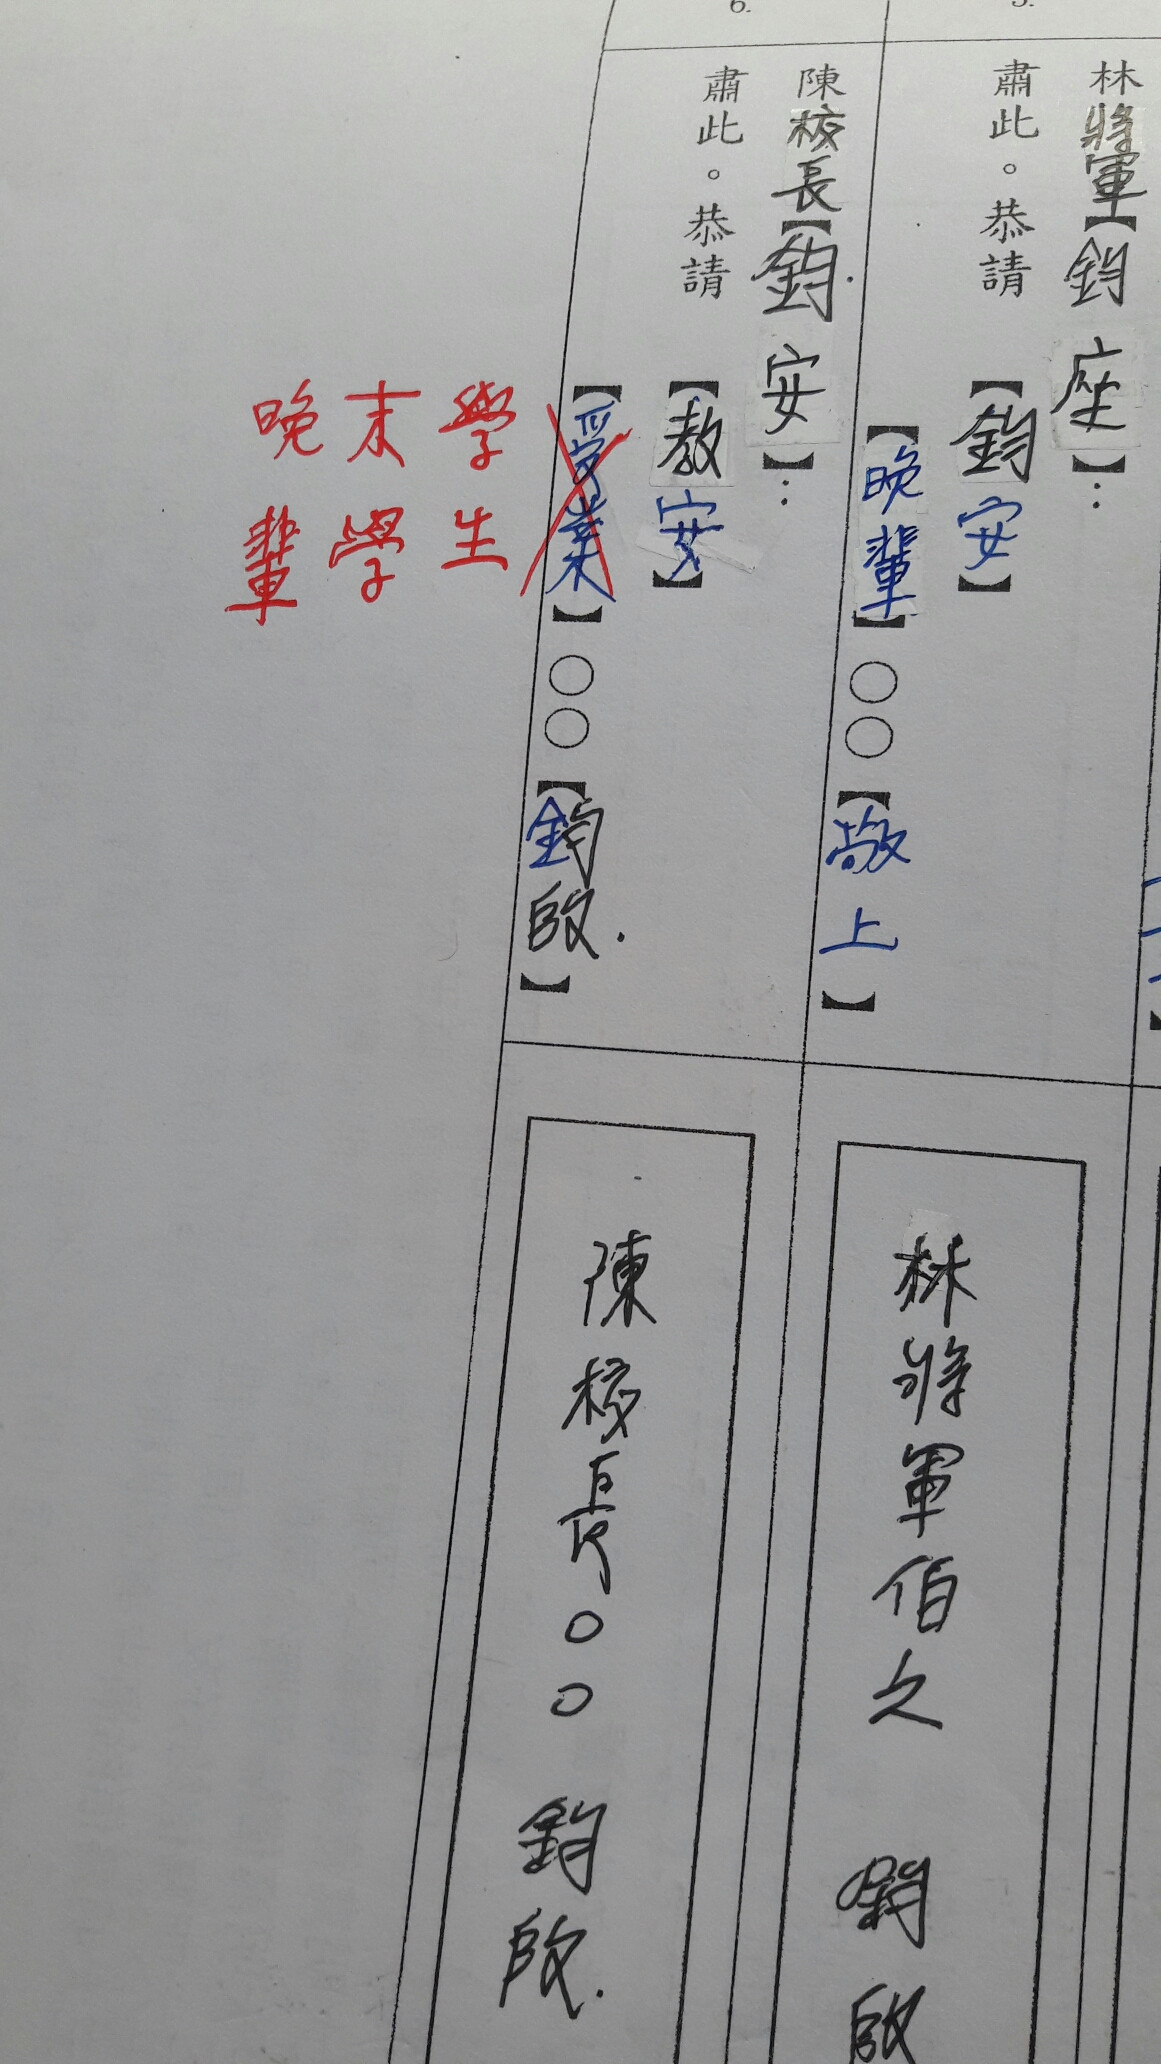 5.
林將軍【鈞座】：
肅此。恭請
【鈞安】
【晚輩】○○【敬上】
林將軍伯之 鈞啟
6.
陳校長【鈞安】：
肅此。恭請
【教安】
【受業】○○【鈞啟】
學生
末學
晚輩
陳校長○○ 鈞啟